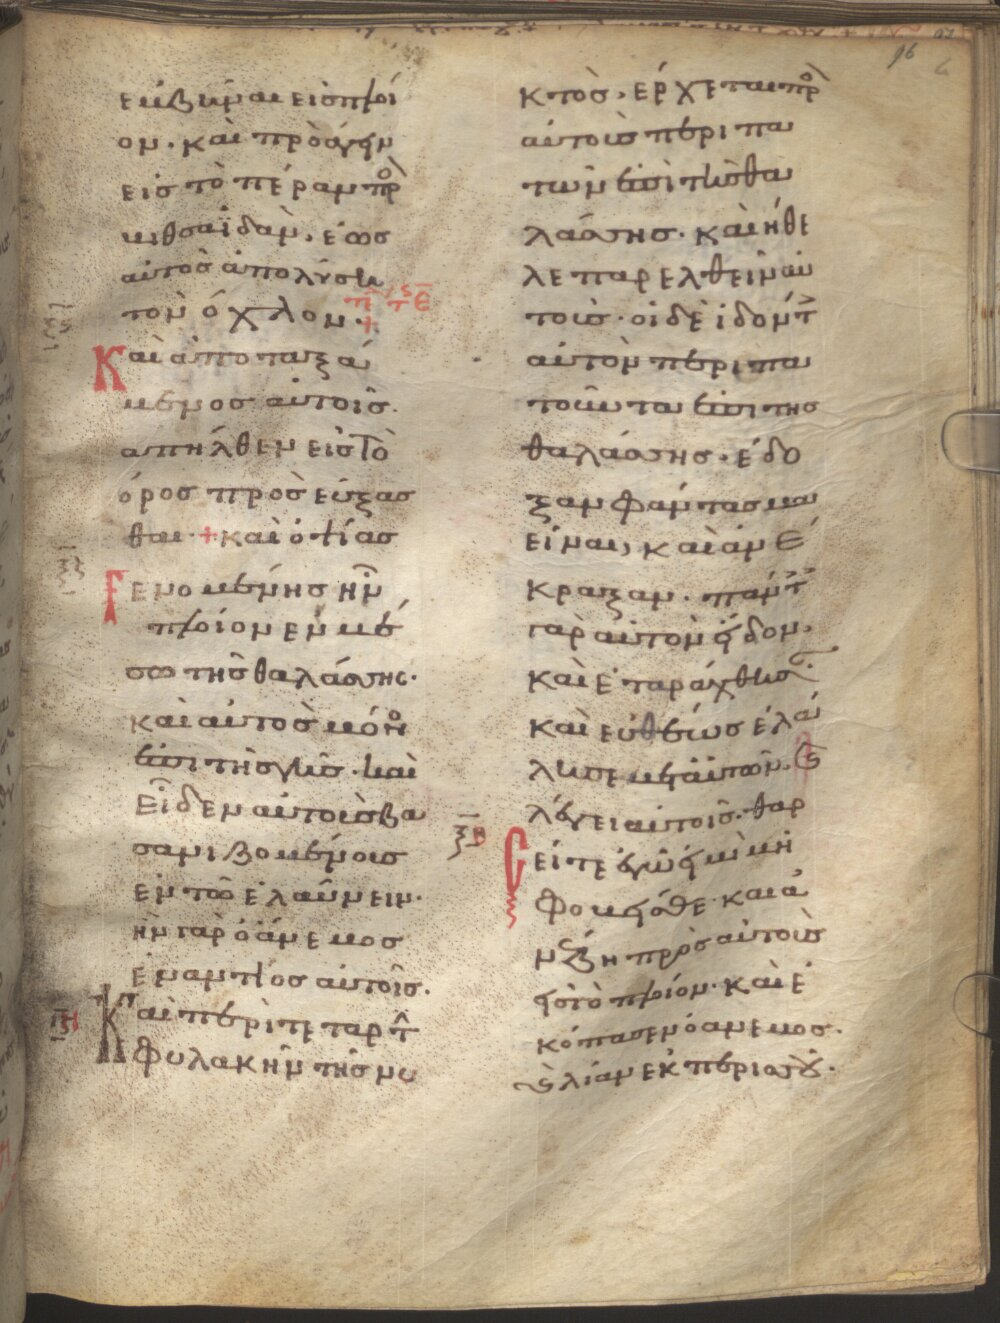 ἐμβῆναι εἰς πλοῖ
ον· καὶ προάγειν
εἰς τὸ πέραν πρ
βιθσαϊδὰν, ἕως
αὐτὸς ἀπολύσει
τὸν ὄχλον·
Καὶ ἀποταξά
μενος αὐτοῖς·
ἀπῆλθεν εἰς τὸ
ὄρος προσεύξασ
θαι· + καὶ ὀψίας
Γενομένης ἦν
πλοῖον ἐν μέ
σω τῆς θαλάσσης·
καὶ αὐτὸς μόνο
ἐπὶ τῆς γῆς· καὶ
εἶδεν αὐτοὺς βα
σανιζομένοις
ἐν τῶ ἐλαύνειν·
ἦν γὰρ ὁ ἄνεμος
ἐναντίος αὐτοῖς·
ΞΗ
Καὶ περὶ τετάρτ
φυλακὴν τῆς νυ
96
κτὸς· ἔρχεται πρ
αὐτοὺς περιπα
τῶν ἐπὶ τῆς θα
λάσσης· καὶ ἤθε
λε παρελθεῖν αὐ
τοὺς· οἱ δὲ ἰδόντ
αὐτὸν περιπα
τοῦντα ἐπὶ τῆς
θαλάσσης· ἔδο
ξαν φάντασμα
εἶναι, καὶ ἀνέ
κραξαν· πάντ
γὰρ αὐτὸν εἶδον·
καὶ ἐταράχθησ
καὶ εὐθέως ἐλά
λησε μετ' αὐτῶν· κ
λέγει αὐτοῖς· θαρ
Σεῖτε ἐγώ εἰμι μὴ
φοβεῖσθε· καὶ ἀ
νέβη πρὸς αὐτοὺς
εἰς τὸ πλοῖον· καὶ ἐ
κόπασεν ὁ ἄνεμος·
κ λίαν ἐκ περισσοῦ·